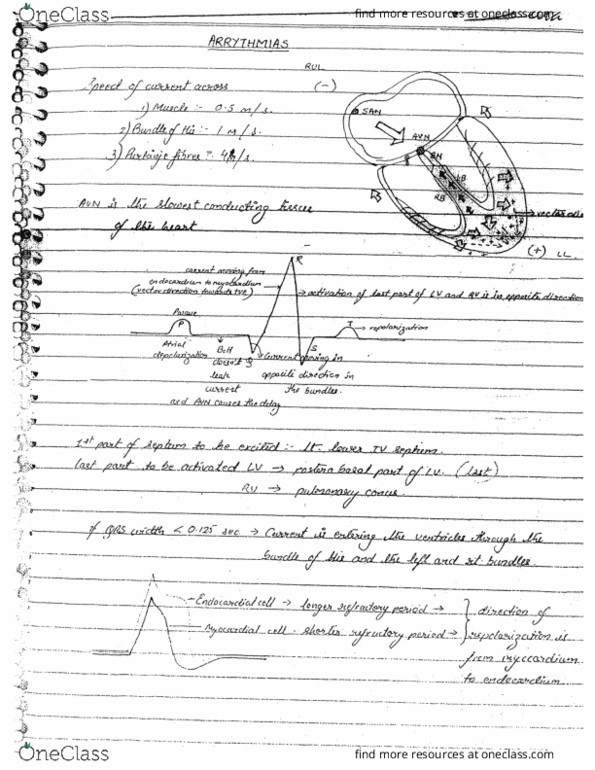 OneClass
find more resources at oneclass.com
ARRYTHMIAS
RUL
(-)
Speed of current across
1) Muscle :- 0.5 m/s.
2) Bundle of His :- 1 m/s.
3) Purkinje fibres :- 4m/s.
SAN
AVN
BH
LB
RB
AVN is the slowest conducting tissue
of the heart
(+) LL
R
current moving from
endocardium to myocardium
(vector direction towards +ve)
activation of last part of LV and RV is in opposite direction
Pwave
P
T
repolarization
Atrial
depolarization
BoH
doesn't
leak
current
and AVN causes the delay
Q
S
Current moving in
opposite direction in
the bundles.
1st part of septum to be excited :- lt. lower IV septum.
last part to be activated LV → postero basal part of LV. (last)
RV → pulmonary conus.
If QRS width < 0.125 sec → Current is entering the ventricles through the
bundle of His and the left and rt bundles.
Endocardial cell → longer refractory period →
Myocardial cell - shorter refractory period →
direction of
repolarization is
from myocardium
to endocardium.
OneClass
find more resources at oneclass.com